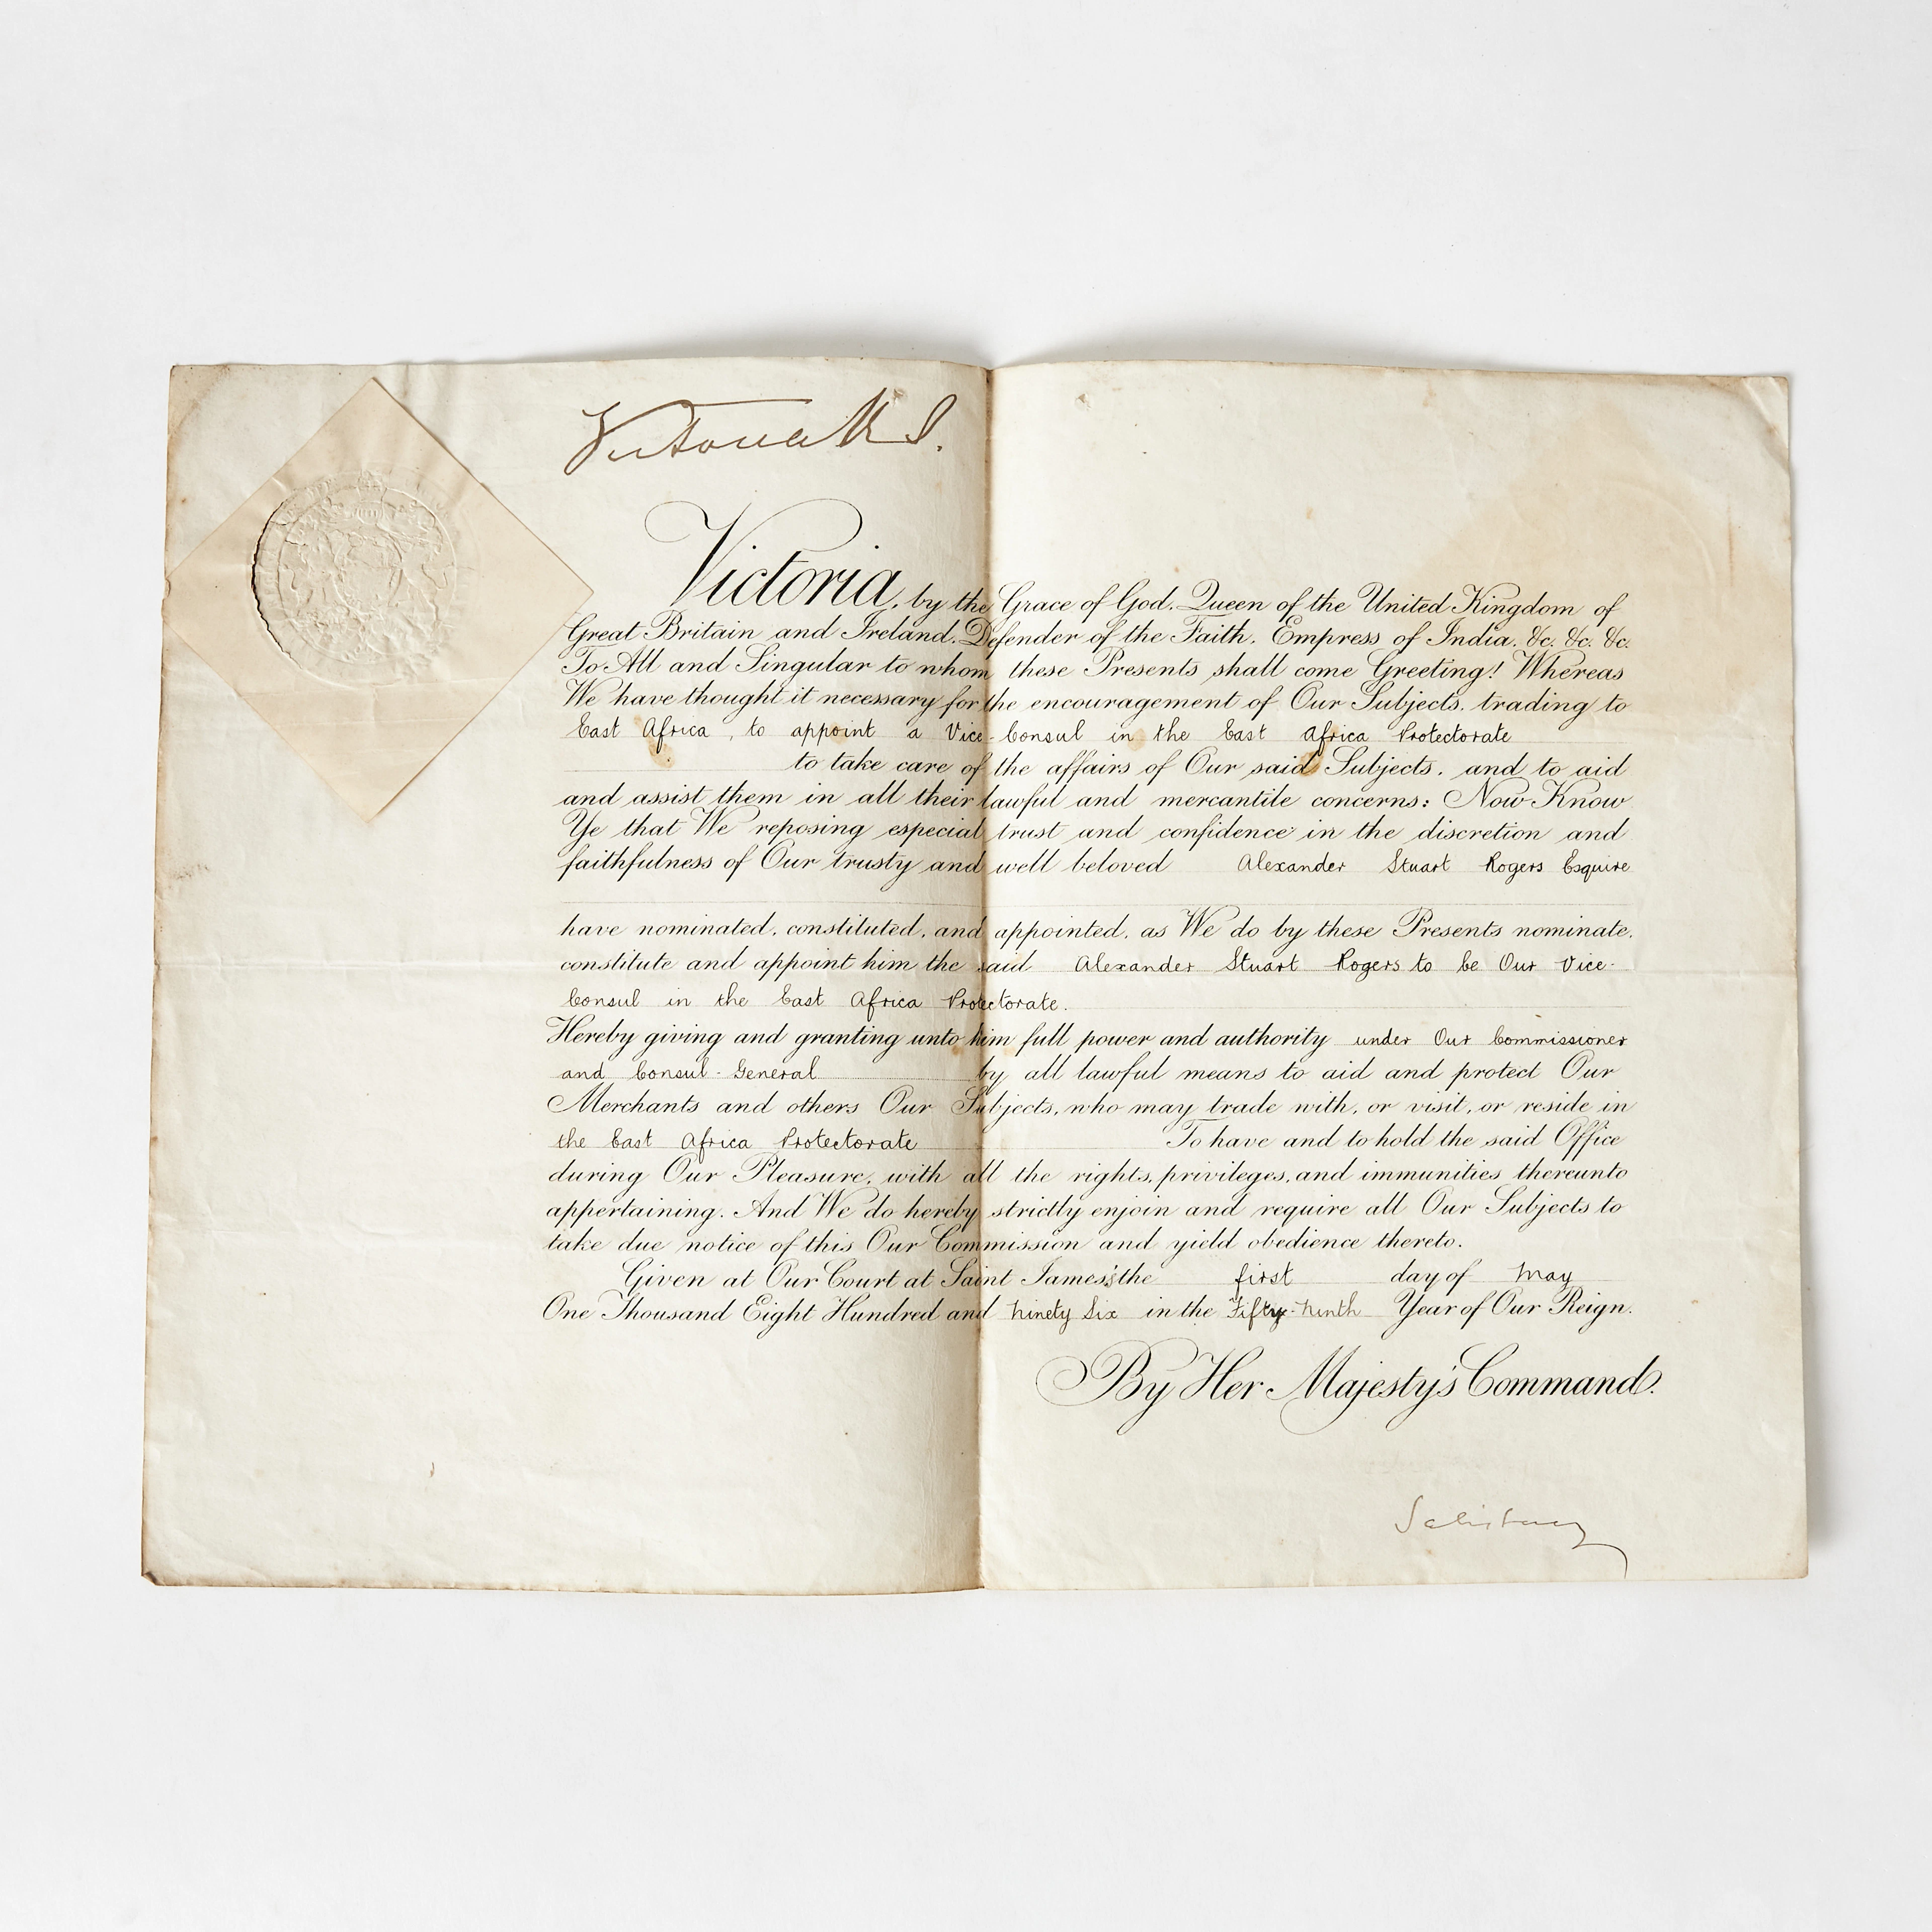 Victoria R I.
Victoria, by the Grace of God, Queen of the United Kingdom of
Great Britain and Ireland, Defender of the Faith, Empress of India, &c. &c. &c.
To All and Singular to whom these Presents shall come Greeting! Whereas
We have thought it necessary for the encouragement of Our Subjects, trading to
East Africa, to appoint a Vice-Consul in the East Africa Protectorate
to take care of the affairs of Our said Subjects, and to aid
and assist them in all their lawful and mercantile concerns: Now Know
Ye that We reposing especial trust and confidence in the discretion and
faithfulness of Our trusty and well beloved Alexander Stuart Rogers Esquire
have nominated, constituted, and appointed, as We do by these Presents nominate,
constitute and appoint him the said Alexander Stuart Rogers to be Our Vice-
Consul in the East Africa Protectorate.
Hereby giving and granting unto him full power and authority under Our Commissioner
and Consul-General by all lawful means to aid and protect Our
Merchants and others Our Subjects, who may trade with, or visit, or reside in
the East Africa Protectorate To have and to hold the said Office
during Our Pleasure, with all the rights, privileges, and immunities thereunto
appertaining. And We do hereby strictly enjoin and require all Our Subjects to
take due notice of this Our Commission and yield obedience thereto.
Given at Our Court at Saint James's the first day of May
One Thousand Eight Hundred and Ninety Six in the Fifty-Ninth Year of Our Reign.
By Her Majesty's Command.
Salisbury